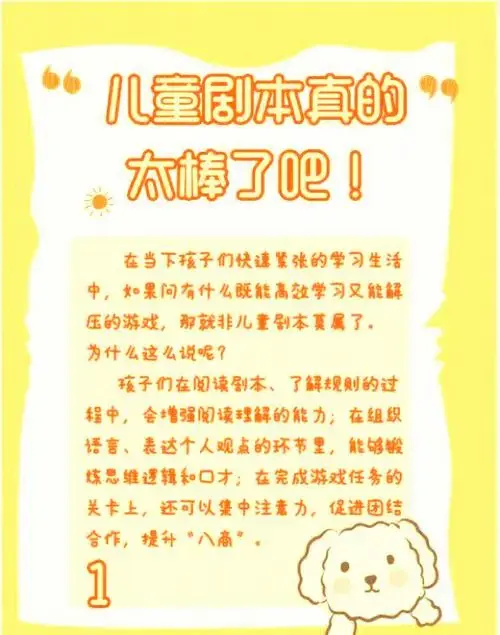 “ 儿童剧本真的 ”
太棒了吧！
在当下孩子们快速紧张的学习生活
中，如果问有什么既能高效学习又能解
压的游戏，那就非儿童剧本莫属了。
为什么这么说呢？
孩子们在阅读剧本、了解规则的过
程中，会增强阅读理解的能力；在组织
语言、表达个人观点的环节里，能够锻
炼思维逻辑和口才；在完成游戏任务的
关卡上，还可以集中注意力，促进团结
合作，提升“八商”。
1